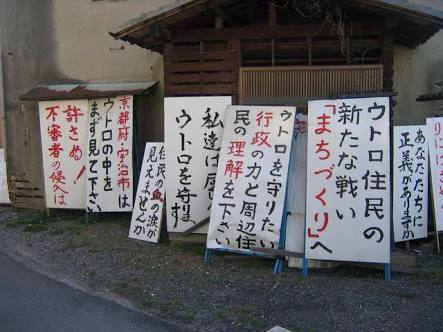 あなたたちに
正義がありますか
ウトロ住民の
新たな戦い
「まちづくり」へ
ウトロを守りたい
行政の力と周辺住
民の理解を下さい
私達は
ウトロを守ります
住民の血の涙が
見えませんか
京都府・宇治市は
ウトロの中を
まず見て下さい
許さぬ!
不審者の侵入は